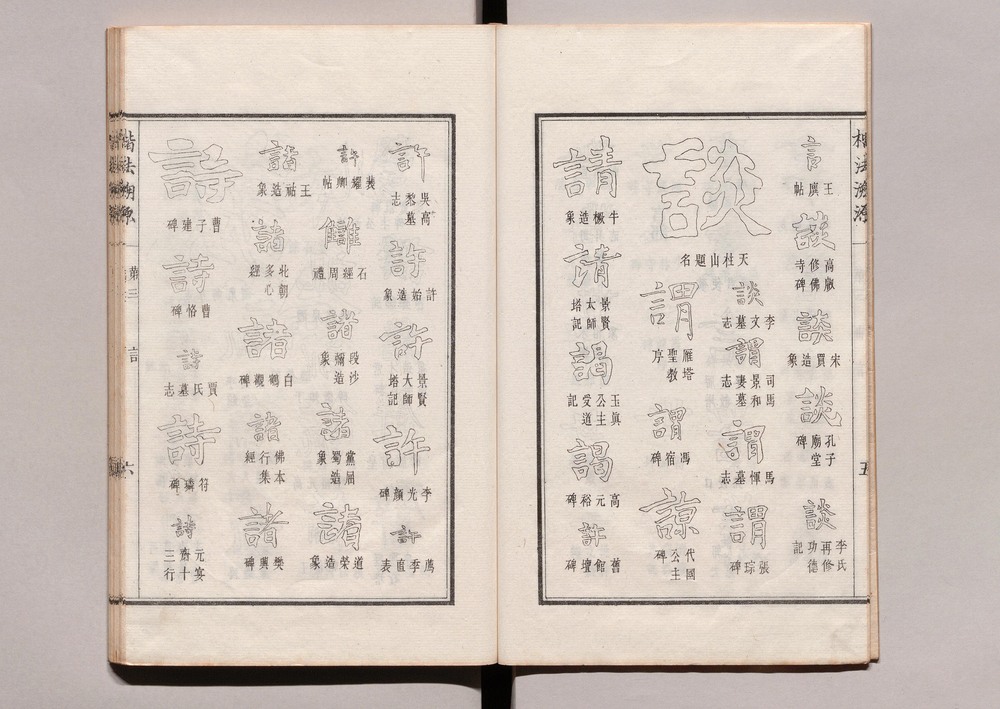 楷法溯源
五
言
王廙帖
談
高叡修佛寺碑
談
宋買造象
談
孔子廟堂碑
談
李氏再修功德記
談
天柱山題名
談
李文墓志
謂
司馬景和妻墓志
謂
馬惲墓志
謂
張琮碑
謂
雁塔聖教序
謂
馮宿碑
諒
代國公主碑
請
牛橛造象
請
景賢大師塔記
謁
玉真公主受道記
謁
高元裕碑
許
舊館壇碑
許
吳高黎墓志
許
許始造象
許
景賢大師塔記
許
李光顏碑
許
薦季直表
許
裴耀卿帖
讎
石經周禮
諸
段沙彌造象
諸
黨屈蜀造象
諸
道榮造象
諸
王祜造象
諸
北朝多心經
諸
白鶴觀碑
諸
佛本行集經
諸
樊興碑
詩
曹子建碑
詩
曹恪碑
詩
賈氏墓志
詩
符璘碑
詩
元宴齋十三行
楷法溯源
第三
言
六